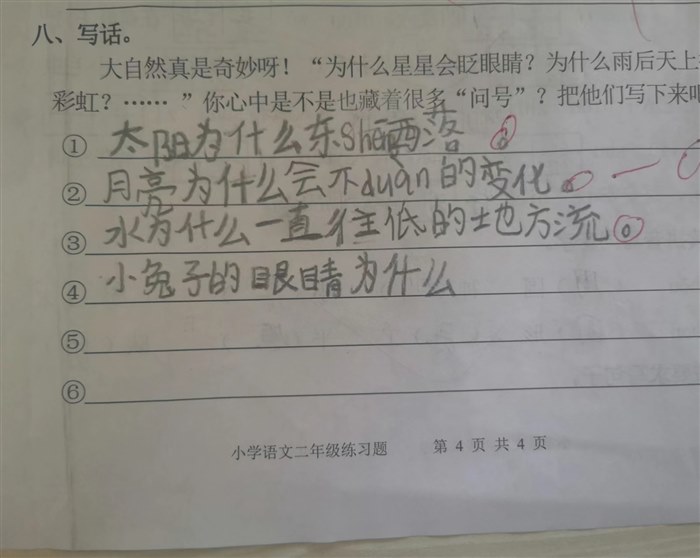 八、写话。
大自然真是奇妙呀！“为什么星星会眨眼睛？为什么雨后天上
彩虹？…… ”你心中是不是也藏着很多“问号”？把他们写下来吧
① 太阳为什么东shēng西落。
② 月亮为什么会不duàn的变化。
③ 水为什么一直往低的地方流。
④ 小兔子的眼睛为什么
⑤
⑥
小学语文二年级练习题 第 4 页 共 4 页